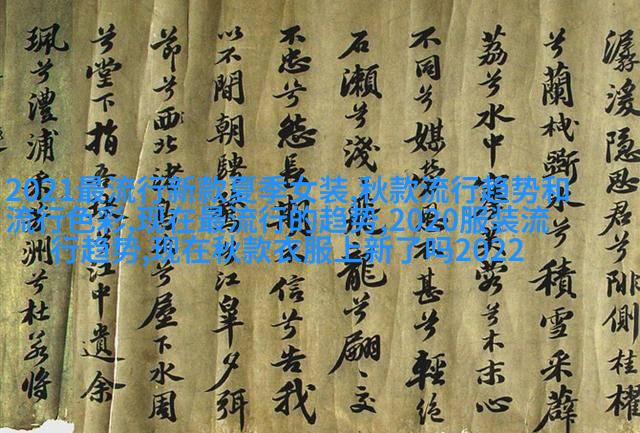 2021最流行新款夏季女装,秋款流行趋势和
流行色彩,现在最流行的趋势,2020服装流
行趋势,现在秋款衣服上新了吗2022
潺湲隐思君兮陫側桂櫂
兮蘭栧斲兮積雪采薜
荔兮水中兮木末心
不同兮媒不甚兮輕絶
石瀨兮淺飛龍兮翩〻交
不忠兮怨長期不信兮告我
以不閒朝騁江皋夕弭
節兮北渚兮屋下水周
兮堂下捐江中遺余
珮兮澧浦洲兮杜若將